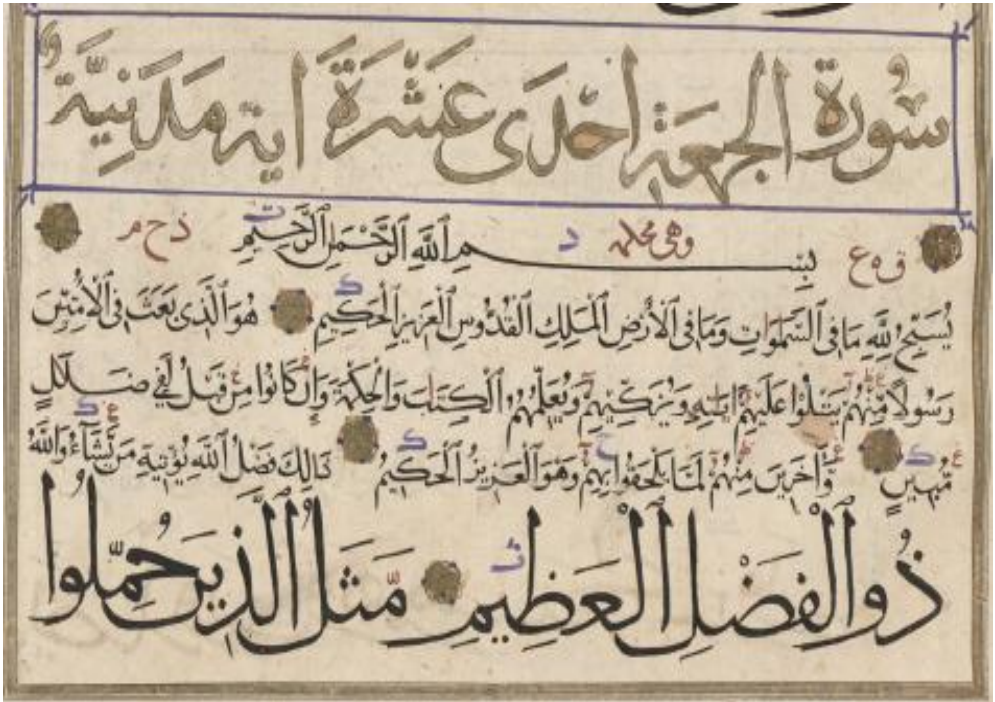 سُورَةُ الجُمعَةِ اِحْدَى عَشْرَةَ اٰيَة مَدَنِيَّةٌ
بِسْمِ ٱللَّهِ ٱلرَّحْمَٰنِ ٱلرَّحِيمِ
يُسَبِّحُ لِلَّهِ مَا فِى ٱلسَّمَٰوَاتِ وَمَا فِى ٱلْأَرْضِ ٱلْمَلِكِ ٱلْقُدُّوسِ ٱلْعَزِيزِ ٱلْحَكِيمِ هُوَ ٱلَّذِى بَعَثَ فِى ٱلْأُمِّيِّنَ
رَسُولًا مِّنْهُمْ يَتْلُوا عَلَيْهِمْ اٰيَٰتِهِ وَيُزَكِّيهِمْ وَيُعَلِّمُهُمُ ٱلْكِتَٰبَ وَٱلْحِكْمَةَ وَإِنْ كَانُوا مِنْ قَبْلُ لَفِى ضَلَٰلٍ
مُّبِينٍ وَّاٰخَرِينَ مِنْهُمْ لَمَّا يَلْحَقُوا بِهِمْ وَهُوَ ٱلْعَزِيزُ ٱلْحَكِيمُ ذَٰلِكَ فَضْلُ ٱللَّهِ يُؤْتِيهِ مَنْ يَّشَآءُ وَٱللَّهُ
ذُو ٱلْفَضْلِ ٱلْعَظِيمِ مَثَلُ ٱلَّذِينَ حُمِّلُوا